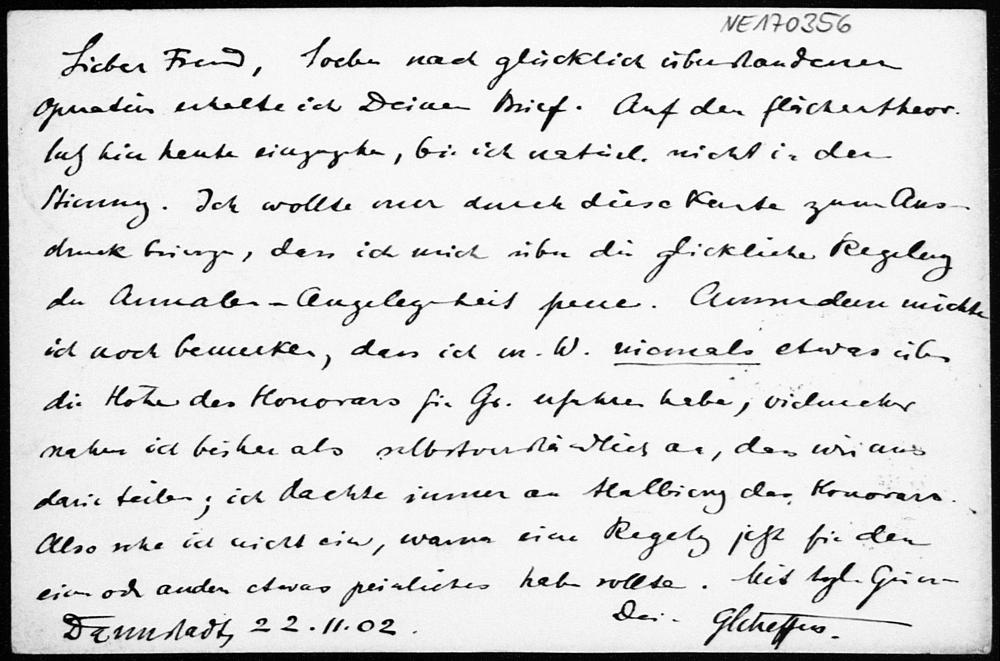 NE170356
Lieber Freund, Soeben nach glücklich überstandener
Operation erhalte ich Deinen Brief. Auf den flächentheor.
hin heute einzugehen, bin ich natürl. nicht in der
Stimmung. Ich wollte nur durch diese Karte zum Aus-
druck bringen, dass ich mich über die glückliche Regelung
der Annalen-Angelegenheit freue. Ausserdem möchte
ich noch bemerken, dass ich m. W. niemals etwas über
die Höhe des Honorars für Gr. erfahren habe, vielmehr
nahm ich bisher als selbstverständlich an, dass wir uns
darin teilen; ich dachte immer an Halbierung des Honorars.
Also sehe ich nicht ein, warum eine Regelg jetzt für den
einen oder andern etwas peinliches haben sollte. Mit hzl.
Darmstadt, 22.11.02. Dein GScheffers.